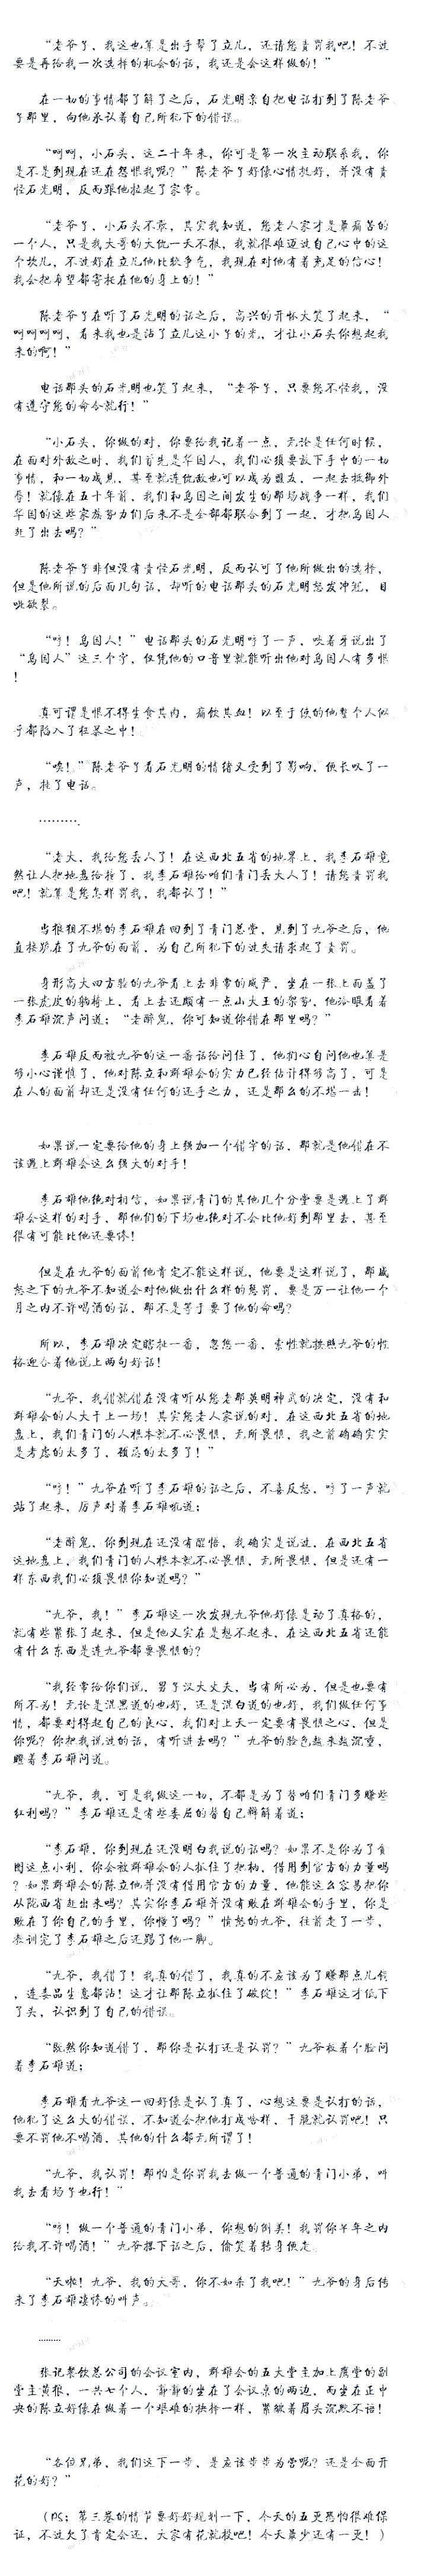 “老爷子，我这也算是出手帮了立儿，还请您责罚我吧！不过
要是再给我一次选择的机会的话，我还是会这样做的！”
在一切的事情都了解了之后，石光明亲自把电话打到了陈老爷
子那里，向他承认着自己所犯下的错误。
“呵呵，小石头，这二十年来，你可是第一次主动联系我，你
是不是到现在还在怨恨我呢？”陈老爷子好像心情挺好，并没有责
怪石光明，反而跟他拉起了家常。
“老爷子，小石头不敢，其实我知道，您老人家才是最痛苦的
一个人，只是我大哥的大仇一天不报，我就很难迈过自己心中的这
个坎儿，不过好在立儿他比较争气，我现在对他有着充足的信心！
我会把希望都寄托在他的身上的！”
陈老爷子在听了石光明的话之后，高兴的开怀大笑了起来，“
呵呵呵呵，看来我也是沾了立儿这小子的光，才让小石头你想起我
来的啊！”
电话那头的石光明也笑了起来，“老爷子，只要您不怪我，没
有遵守您的命令就行！”
“小石头，你做的对，你要给我记着一点，无论是任何时候，
在面对外敌之时，我们首先是华国人，我们必须要放下手中的一切
事情，和一切成见，甚至就连仇敌也可以成为盟友，一起去抵御外
辱！就像在五十年前，我们和岛国之间发生的那场战争一样，我们
华国的这些家族势力们后来不是全部都联合到了一起，才把岛国人
赶了出去吗？”
陈老爷子非但没有责怪石光明，反而认可了他所做出的选择，
但是他所说的后面几句话，却听的电话那头的石光明怒发冲冠，目
眦欲裂。
“哼！岛国人！”电话那头的石光明哼了一声，咬着牙说出了
“岛国人”这三个字，仅凭他的口音里就能听出他对岛国人有多恨
！
真可谓是恨不得生食其肉，痛饮其血！以至于使的他整个人似
乎都陷入了狂暴之中！
“唉！”陈老爷子看石光明的情绪又受到了影响，便长叹了一
声，挂了电话。
………．
“老大，我给您丢人了！在这西北五省的地界上，我李石雄竟
然让人把地盘给抢了，我李石雄给咱们青门丢大人了！请您责罚我
吧！就算是您怎样罚我，我都认了！”
当狼狈不堪的李石雄在回到了青门总堂，见到了九爷之后，他
直接跪在了九爷的面前，为自己所犯下的过失请求起了责罚。
身形高大四方脸的九爷看上去非常的威严，坐在一张上面盖了
一张虎皮的躺椅上，看上去还颇有一点山大王的架势，他冷眼看着
李石雄沉声问道：“老醉鬼，你可知道你错在那里吗？”
李石雄反而被九爷的这一番话给问住了，他扪心自问他也算是
够小心谨慎了，他对陈立和群雄会的实力已经估计得够高了，可是
在人的面前却还是没有任何的还手之力，还是那么的不堪一击！
如果说一定要给他的身上强加一个错字的话，那就是他错在不
该遇上群雄会这么强大的对手！
李石雄他绝对相信，如果说青门的其他几个分堂要是遇上了群
雄会这样的对手，那他们的下场也绝对不会比他好到那里去，甚至
很有可能比他还要惨！
但是在九爷的面前他肯定不能这样说，他要是这样说了，那盛
怒之下的九爷不知道会对他做出什么样的惩罚，要是万一让他一个
月之内不许喝酒的话，那不是等于要了他的命吗？
所以，李石雄决定瞎扯一番，忽悠一番，索性就按照九爷的性
格迎合着他说上两句好话！
“九爷，我错就错在没有听从您老那英明神武的决定，没有和
群雄会的人大干上一场！其实您老人家说的对，在这西北五省的地
盘上，我们青门的人根本就不必畏惧，无所畏惧，我之前确确实实
是考虑的太多了，顾忌的太多了！”
“哼！”九爷在听了李石雄的话之后，不喜反怒，哼了一声就
站了起来，厉声对着李石雄吼道：
“老醉鬼，你到现在还没有醒悟，我确实是说过，在西北五省
这地盘上，我们青门的人根本就不必畏惧，无所畏惧，但是还有一
样东西我们必须畏惧你知道吗？”
“九爷，我！”李石雄这一次发现九爷他好像是动了真格的，
就有些紧张了起来，但是他又实在是想不起来，在这西北五省还能
有什么东西是连九爷都要畏惧的？
“我经常给你们说，男子汉大丈夫，当有所必为，但是也要有
所不为！无论是混黑道的也好，还是混白道的也好，我们做任何事
情，都要对得起自己的良心，我们对上天一定要有畏惧之心，但是
你呢？你把我说过的话，有听进去吗？”九爷的脸色越来越沉重，
瞪着李石雄问道。
“九爷，我，可是我做这一切，不都是为了替咱们青门多赚些
红利吗？”李石雄还是有些委屈的替自己辩解着道；
“李石雄，你到现在还没明白我说的话吗？如果不是你为了贪
图这点小利，你会被群雄会的人抓住了把柄，借用到官方的力量吗
？如果群雄会的陈立他并没有借用官方的力量，他能这么容易把你
从陇西省赶出来吗？其实你李石雄并没有败在群雄会的手里，你是
败在了你自己的手里，你懂了吗？”愤怒的九爷，往前走了一步，
教训完了李石雄之后还踢了他一脚。
“九爷，我错了！我真的错了，我真的不应该为了赚那点儿钱
，连毒品生意都沾！这才让那陈立抓住了破绽！”李石雄这才低下
了头，认识到了自己的错误。
“既然你知道错了，那你是认打还是认罚？”九爷板着个脸问
着李石雄道；
李石雄看九爷这一回好像是认了真了，心想这要是认打的话，
他犯了这么大的错误，不知道会把他打成啥样，干脆就认罚吧！只
要不罚他不喝酒，其他的什么都无所谓了！
“九爷，我认罚！那怕是你罚我去做一个普通的青门小弟，叫
我去看场子也行！”
“哼！做一个普通的青门小弟，你想的倒美！我罚你半年之内
给我不许喝酒！”九爷撂下话之后，偷笑着转身便走。
“天啦！九爷，我的大哥，你不如杀了我吧！”九爷的身后传
来了李石雄凄惨的叫声。
………
张记餐饮总公司的会议室内，群雄会的五大堂主加上虞堂的副
堂主黄狼，一共七个人，静静的坐在了会议桌的两边，而坐在正中
央的陈立好像在做着一个艰难的抉择一样，紧皱着眉头沉默不语！
“各位兄弟，我们这下一步，是应该步步为营呢？还是全面开
花的好？”
（PS：第三卷的情节要好好规划一下，今天的五更恐怕很难保
证，不过欠了肯定会还，大家有花就投吧！今天最少还有一更！）